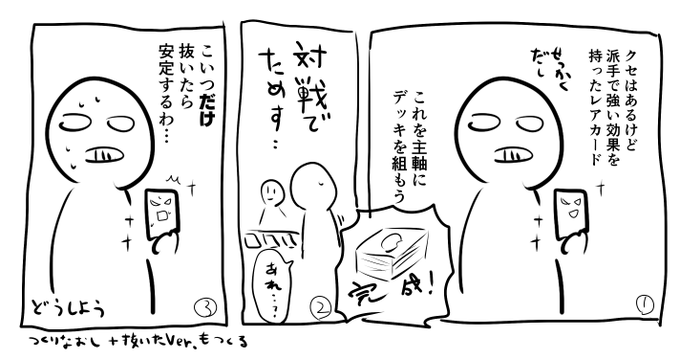 クセはあるけど
派手で強い効果を
持ったレアカード
せっかく
だし
これを主軸に
デッキを組もう
完成!
①
対戦で
ためす…
あれ…?
②
こいつだけ
抜いたら
安定するわ…
どうしよう
③
つくりなおし+抜いたVer.もつくる